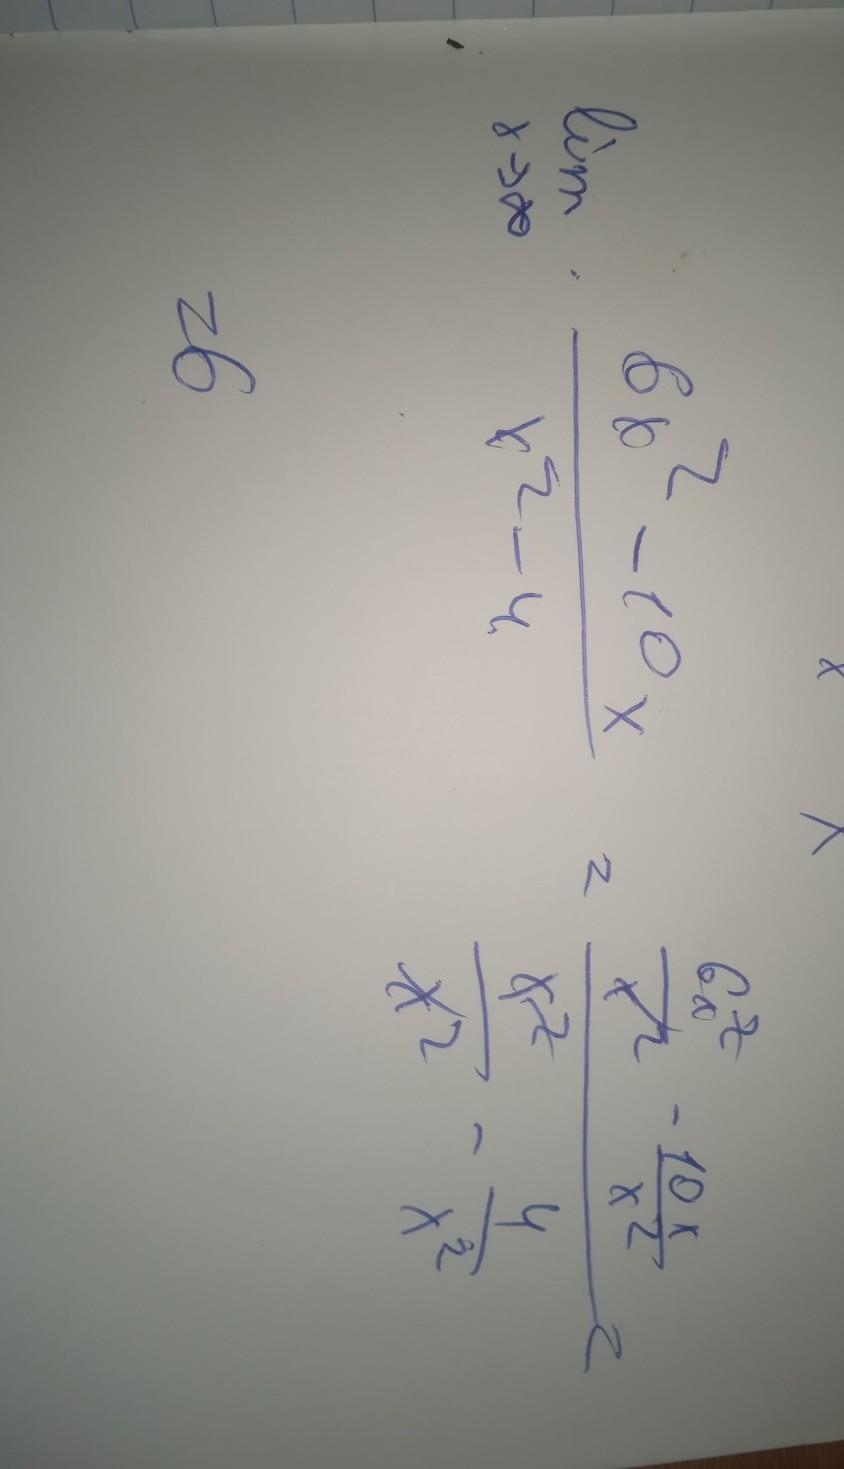 x x
lim x→∞ 6x² - 10x / x² - 4 = 6x²/x² - 10x/x² / x²/x² - 4/x² =
= 6